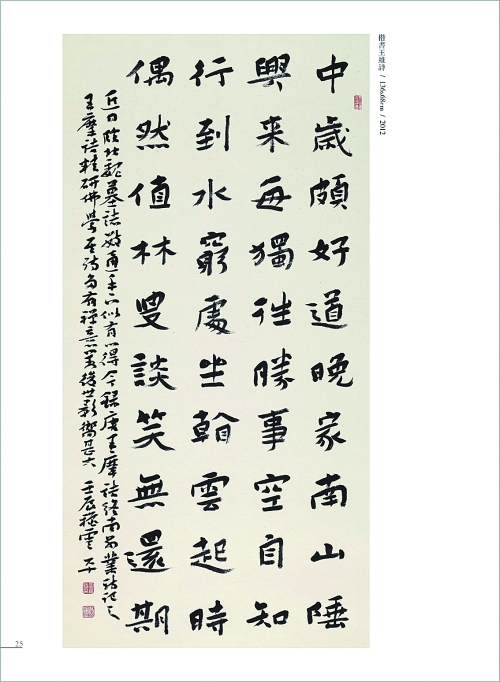 楷書王維詩 / 136x68cm / 2012
中歲頗好道晚家南山陲
興來每獨往勝事空自知
行到水窮處坐看雲起時
偶然值林叟談笑無還期
近日臨北魏墓誌數通手下似有心得今錄唐王摩詰終南別業詩記之
王摩詰精研佛學其詩多有禪意後世影響甚大 壬辰 雲平
25